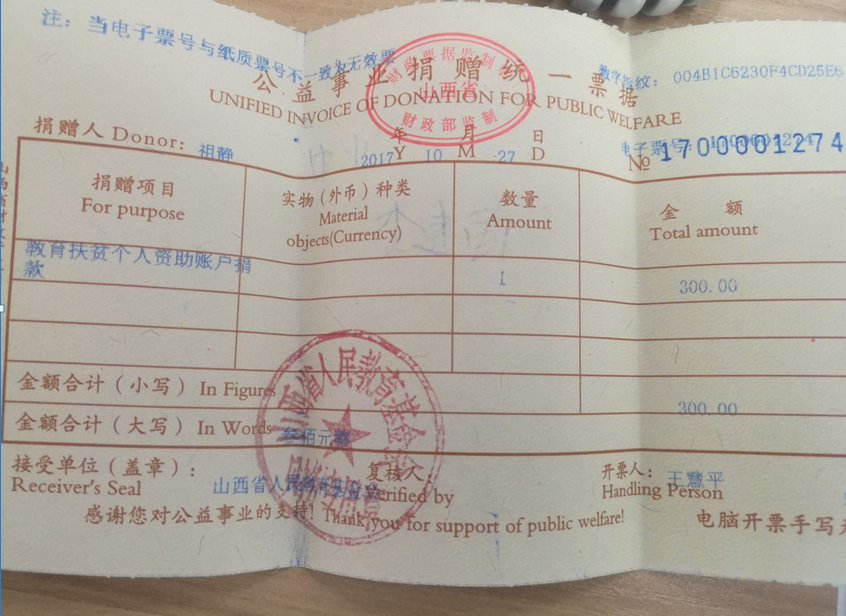 注：当电子票号与纸质票号不一致为无效票
公益事业捐赠统一票据
UNIFIED INVOICE OF DONATION FOR PUBLIC WELFARE
财政票据监制
山西省
财政部监制
数字指纹： 004B1C6230F4CD25E6
捐赠人 Donor: 祖静
2017 年 Y 10 月 M 27 日 D
电子票号：
№ 1700001274
捐赠项目 实物（外币）种类 数量 金 额
For purpose Material objects(Currency) Amount Total amount
教育扶贫个人资助账户捐
款
1 300.00
金额合计（小写）In Figures 300.00
金额合计（大写）In Words 叁佰元整
山西省人民教育基金会
接受单位（盖章）： 山西省人民教育基金会 复核人： 开票人： 王慧平
Receiver's Seal Verified by Handling Person
感谢您对公益事业的支持! Thank you for support of public welfare!
电脑开票手写